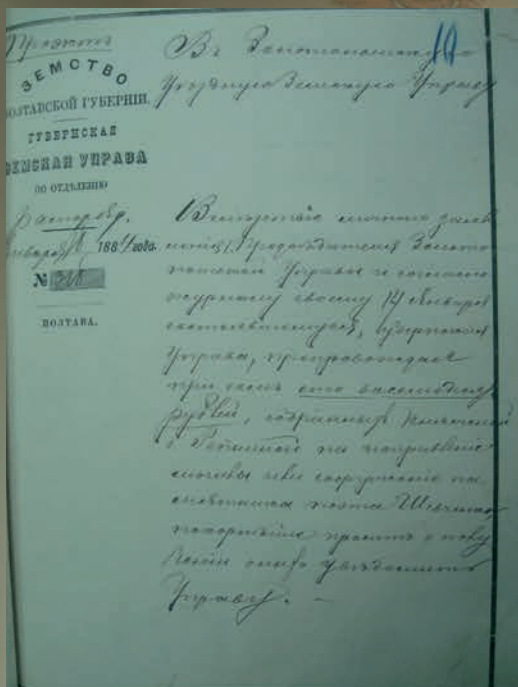 Проэктъ
ЗЕМСТВО
ПОЛТАВСКОЙ ГУБЕРНІИ.
ГУБЕРНСКАЯ
ЗЕМСКАЯ УПРАВА
ПО ОТДѢЛЕНІЮ
Распоряд.
Января 1884 года.
№
ПОЛТАВА.
10
Въ Золотоношскую
Уѣздную Земскую Управу
Вслѣдствіе личнаго заяв
ленія Предсѣдателя Золото
ношской Управы и согласно
журналу своему 14 Января
состоявшемуся, Губернская
Управа, препровождая
при семъ сто восемьдесятъ
рублей, собранныхъ
г. на исправленіе
могилы или сооруженіе па
мятника поэта Шевченко,
покорнѣйше проситъ о полу
ченіи оныхъ увѣдомить
Управу. —